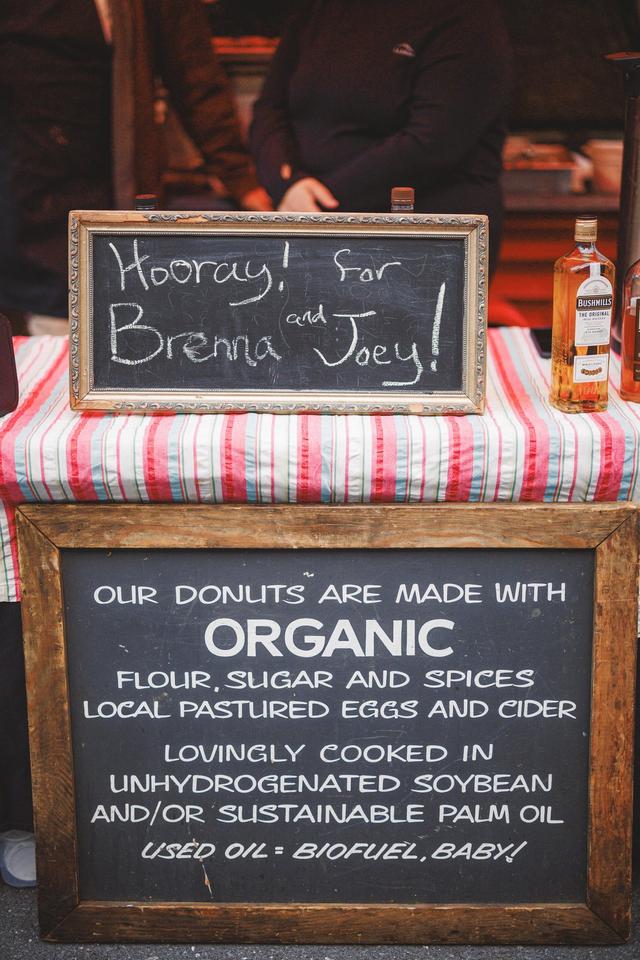 Hooray! for
Brenna and Joey!
BUSHMILLS
THE ORIGINAL
OUR DONUTS ARE MADE WITH
ORGANIC
FLOUR, SUGAR AND SPICES
LOCAL PASTURED EGGS AND CIDER
LOVINGLY COOKED IN
UNHYDROGENATED SOYBEAN
AND/OR SUSTAINABLE PALM OIL
USED OIL = BIOFUEL, BABY!